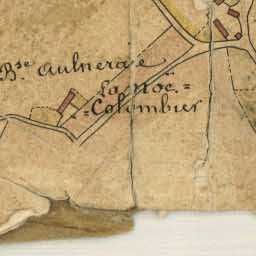 Bse Aulneraie
La Noë =
= Colombier